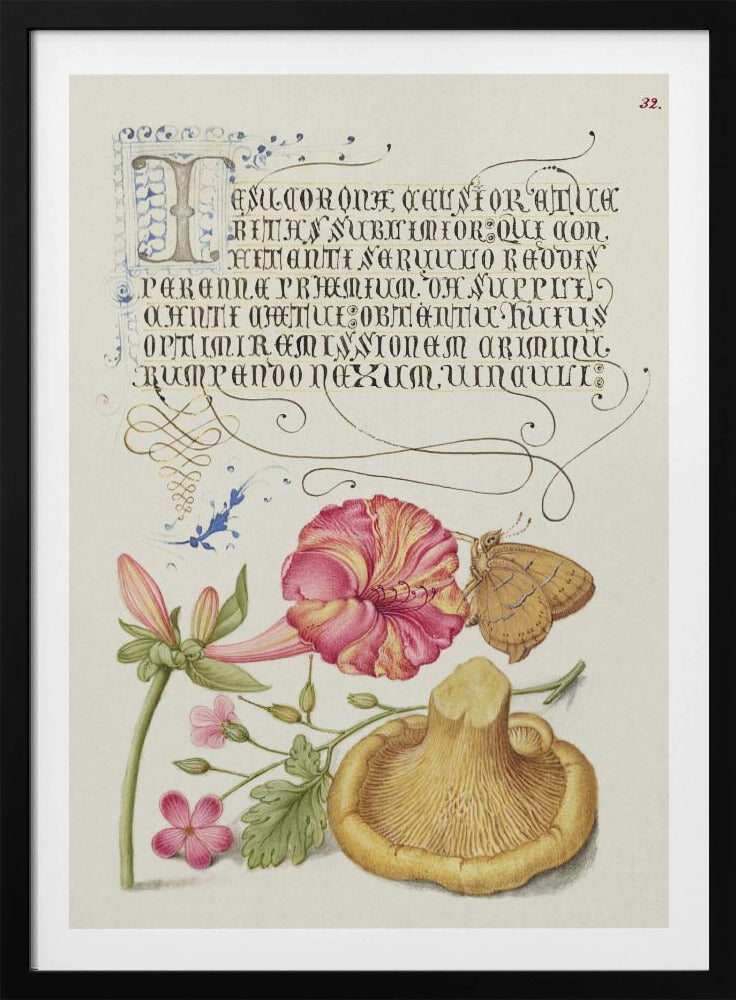 32.
IESU CORONA CELSIOR ET UE
RITAS SUBLIMIOR: QUI CON.
FITENTI SERUULO REDDIS
PERENNE PRÆMIUM. DA SUPPLI
CANTI CÆTUI: OBTENTU HUIUS
OPTIMI REMISSIONEM CRIMINU
RUMPENDO NEXUM, UINCULI: